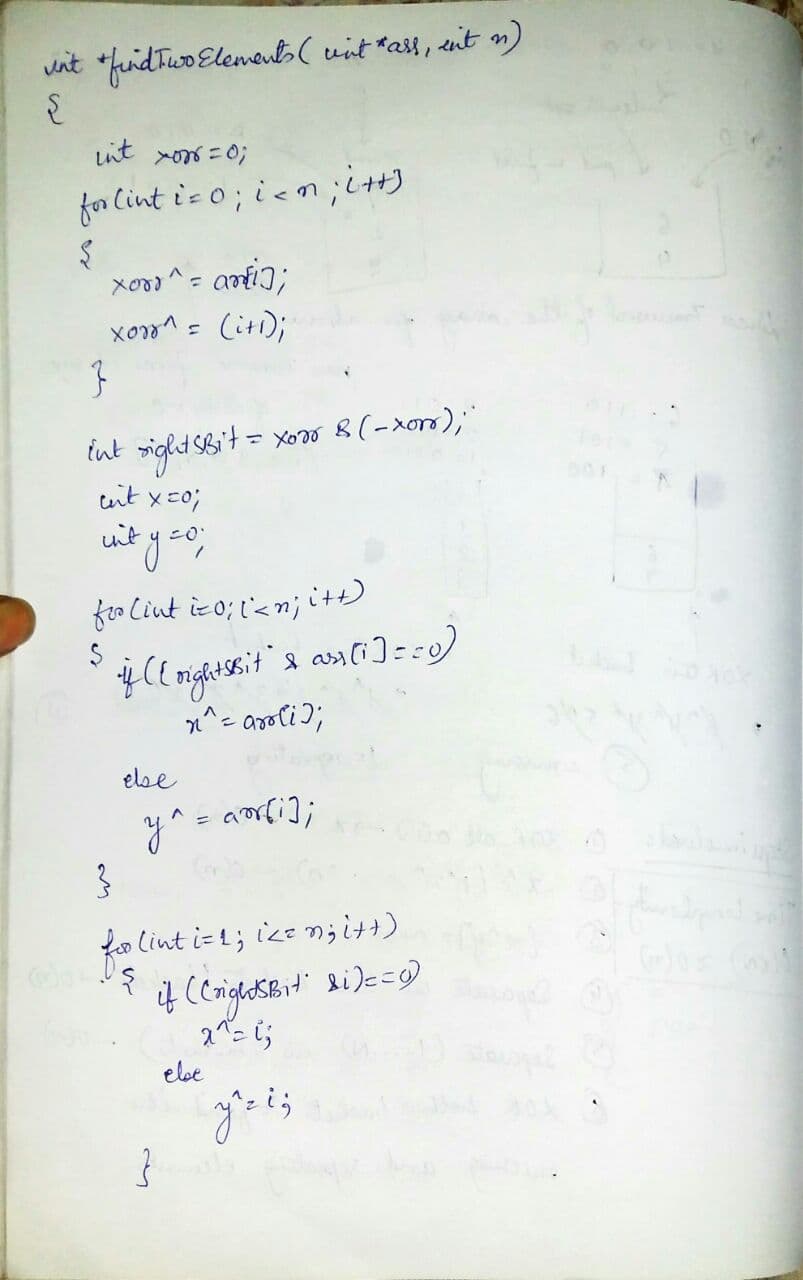 int *findTwoElements( int *arr, int n)
{
int xorr = 0;
for(int i = 0 ; i < n ; i++)
{
xorr ^ = arr[i];
xorr ^ = (i+1);
}
int rightSBit = xorr & (-xorr);
int x = 0;
int y = 0;
for(int i=0; i<n; i++)
{ if (( rightSBit & arr[i] ==0)
x ^ = arr[i];
else
y ^ = arr[i];
}
for (int i=1; i<= n; i++)
{ if ((rightSBit &i)==0)
x^= i;
else
y^= i;
}